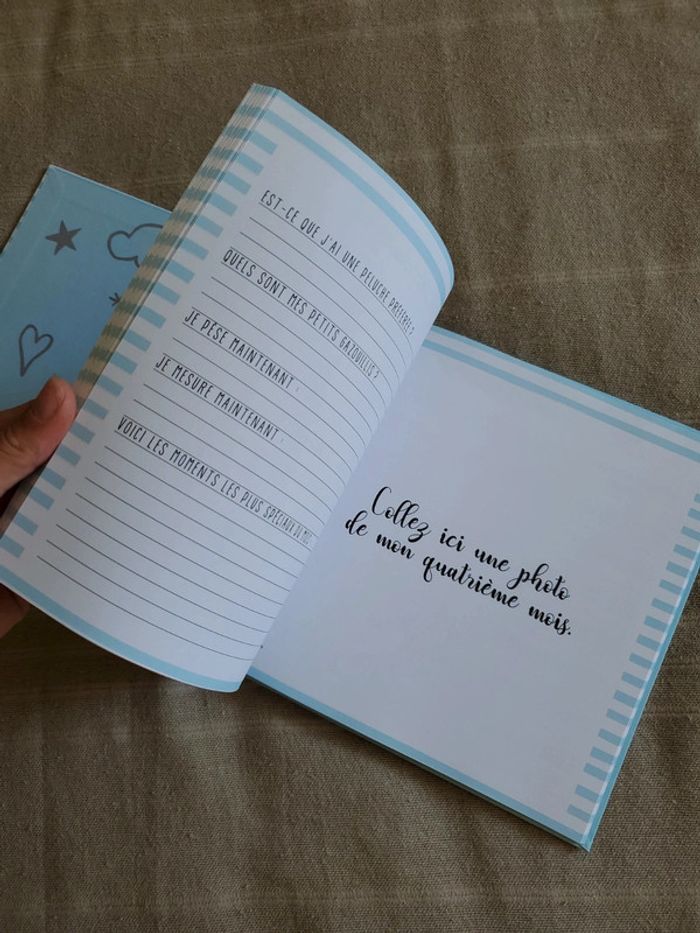 EST-CE QUE J'AI UNE PELUCHE PRÉFÉRÉE ?
QUELS SONT MES PETITS GAZOUILLIS ?
JE PÈSE MAINTENANT :
JE MESURE MAINTENANT :
VOICI LES MOMENTS LES PLUS SPÉCIAUX DU MOIS
Collez ici une photo
de mon quatrième mois.